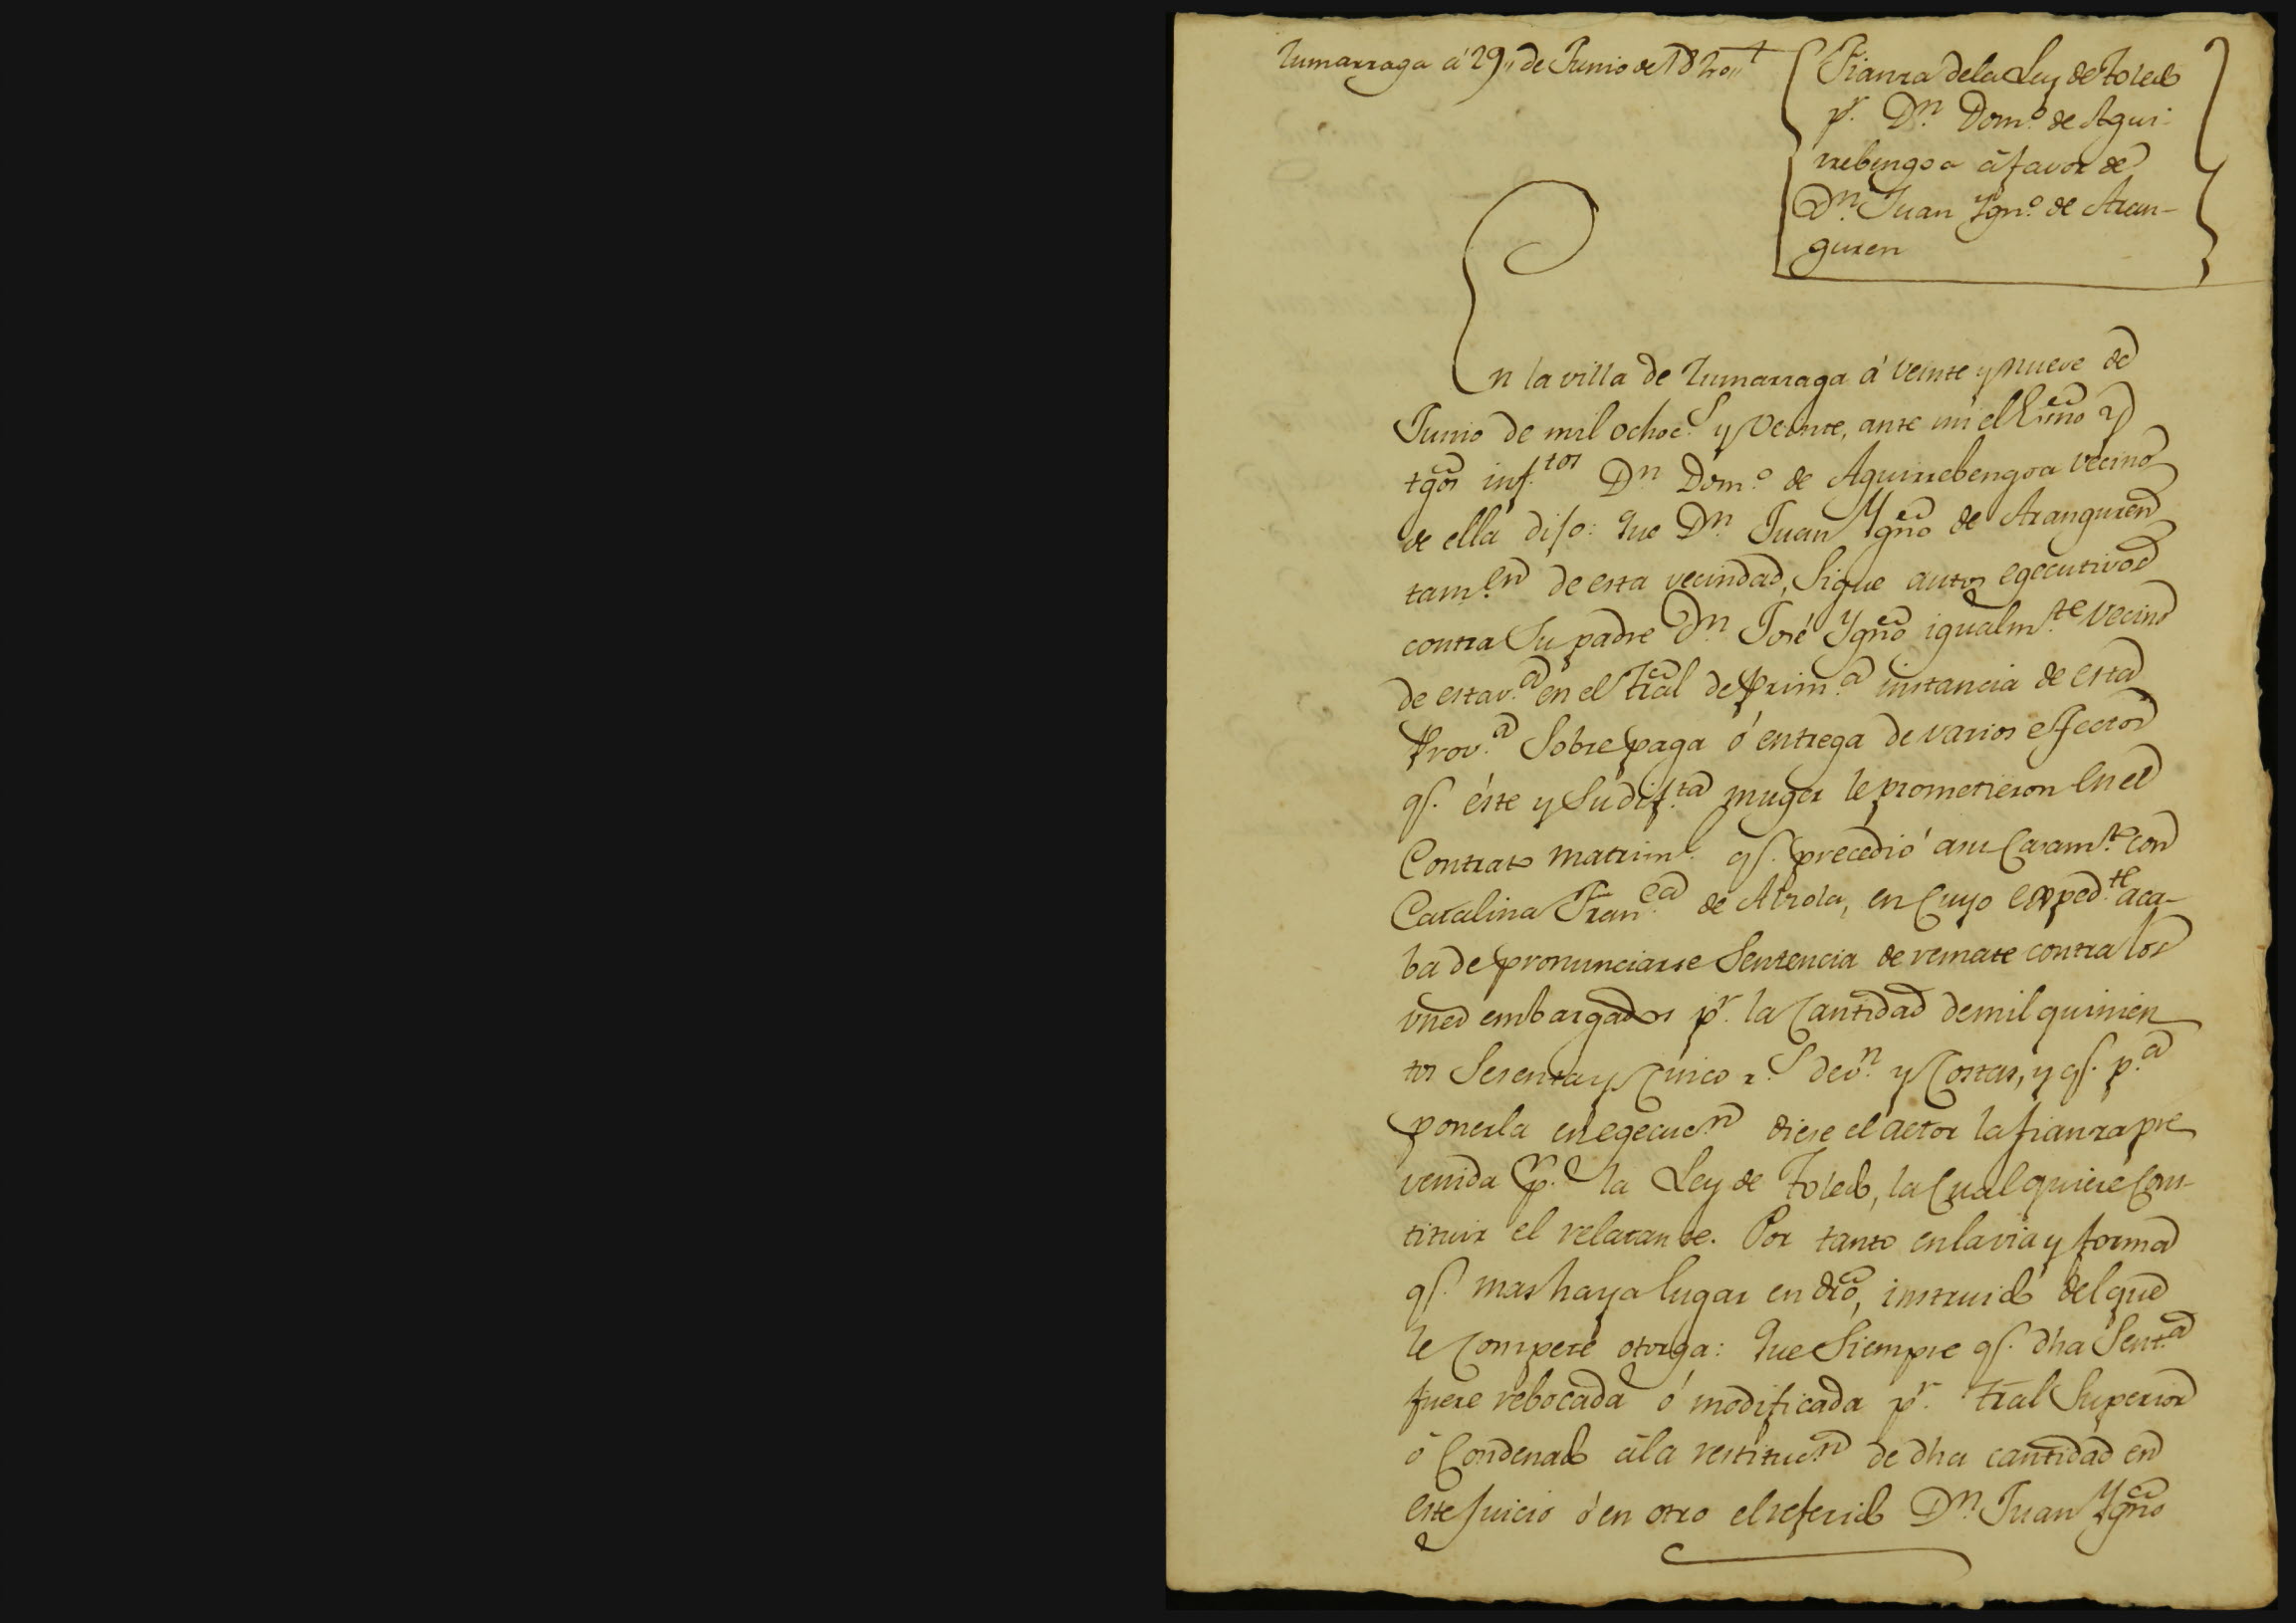 Zumarraga á 29,, de Junio de 1820,,
Fianza dela Ley de Toledo
pr. Dn. Domo. de Agui-
rrebengoa á favor de
Dn. Juan Ygno. de Aran-
guren
En la villa de Zumarraga á veinte y nueve de
Junio de mil ochocs. y veinte, ante mi el Essno y
tgos inftos Dn Domo. de Aguirrebengoa vecino
de ella dijo: Que Dn. Juan Ygno de Aranguren
tamen de esta vecindad, sigue autos egecutivos
contra su padre Dn. José Ygno igualmte. vecino
de esta va. en el tral de prima. instancia de esta
Prova. sobre paga ó entrega de varios effectos
qe. éste y su difta muger le prometieron en el
Contrato matriml. qe. precedió a su casamto. con
Catalina Franca. de Alzola, en cuyo expedte. aca-
ba de pronunciarse sentencia de remate contra los
vnes embargados pr. la cantidad de mil quinien
tos sesenta y cinco rs. de von. y costas, y qe. pa.
ponerla en egecucn diese el actor la fianza pre
venida pr. la Ley de Toledo, la cual quiere cons-
tituir el relatante. Por tanto en la via y forma
qe. mas haya lugar en dro, instruido del que
le compete otorga: Que siempre qe. dha senta
fuere rebocada ó modificada pr. tral superior
ó condenado á la restitucn de dha cantidad en
este juicio ó en otro el referido Dn. Juan Ygno